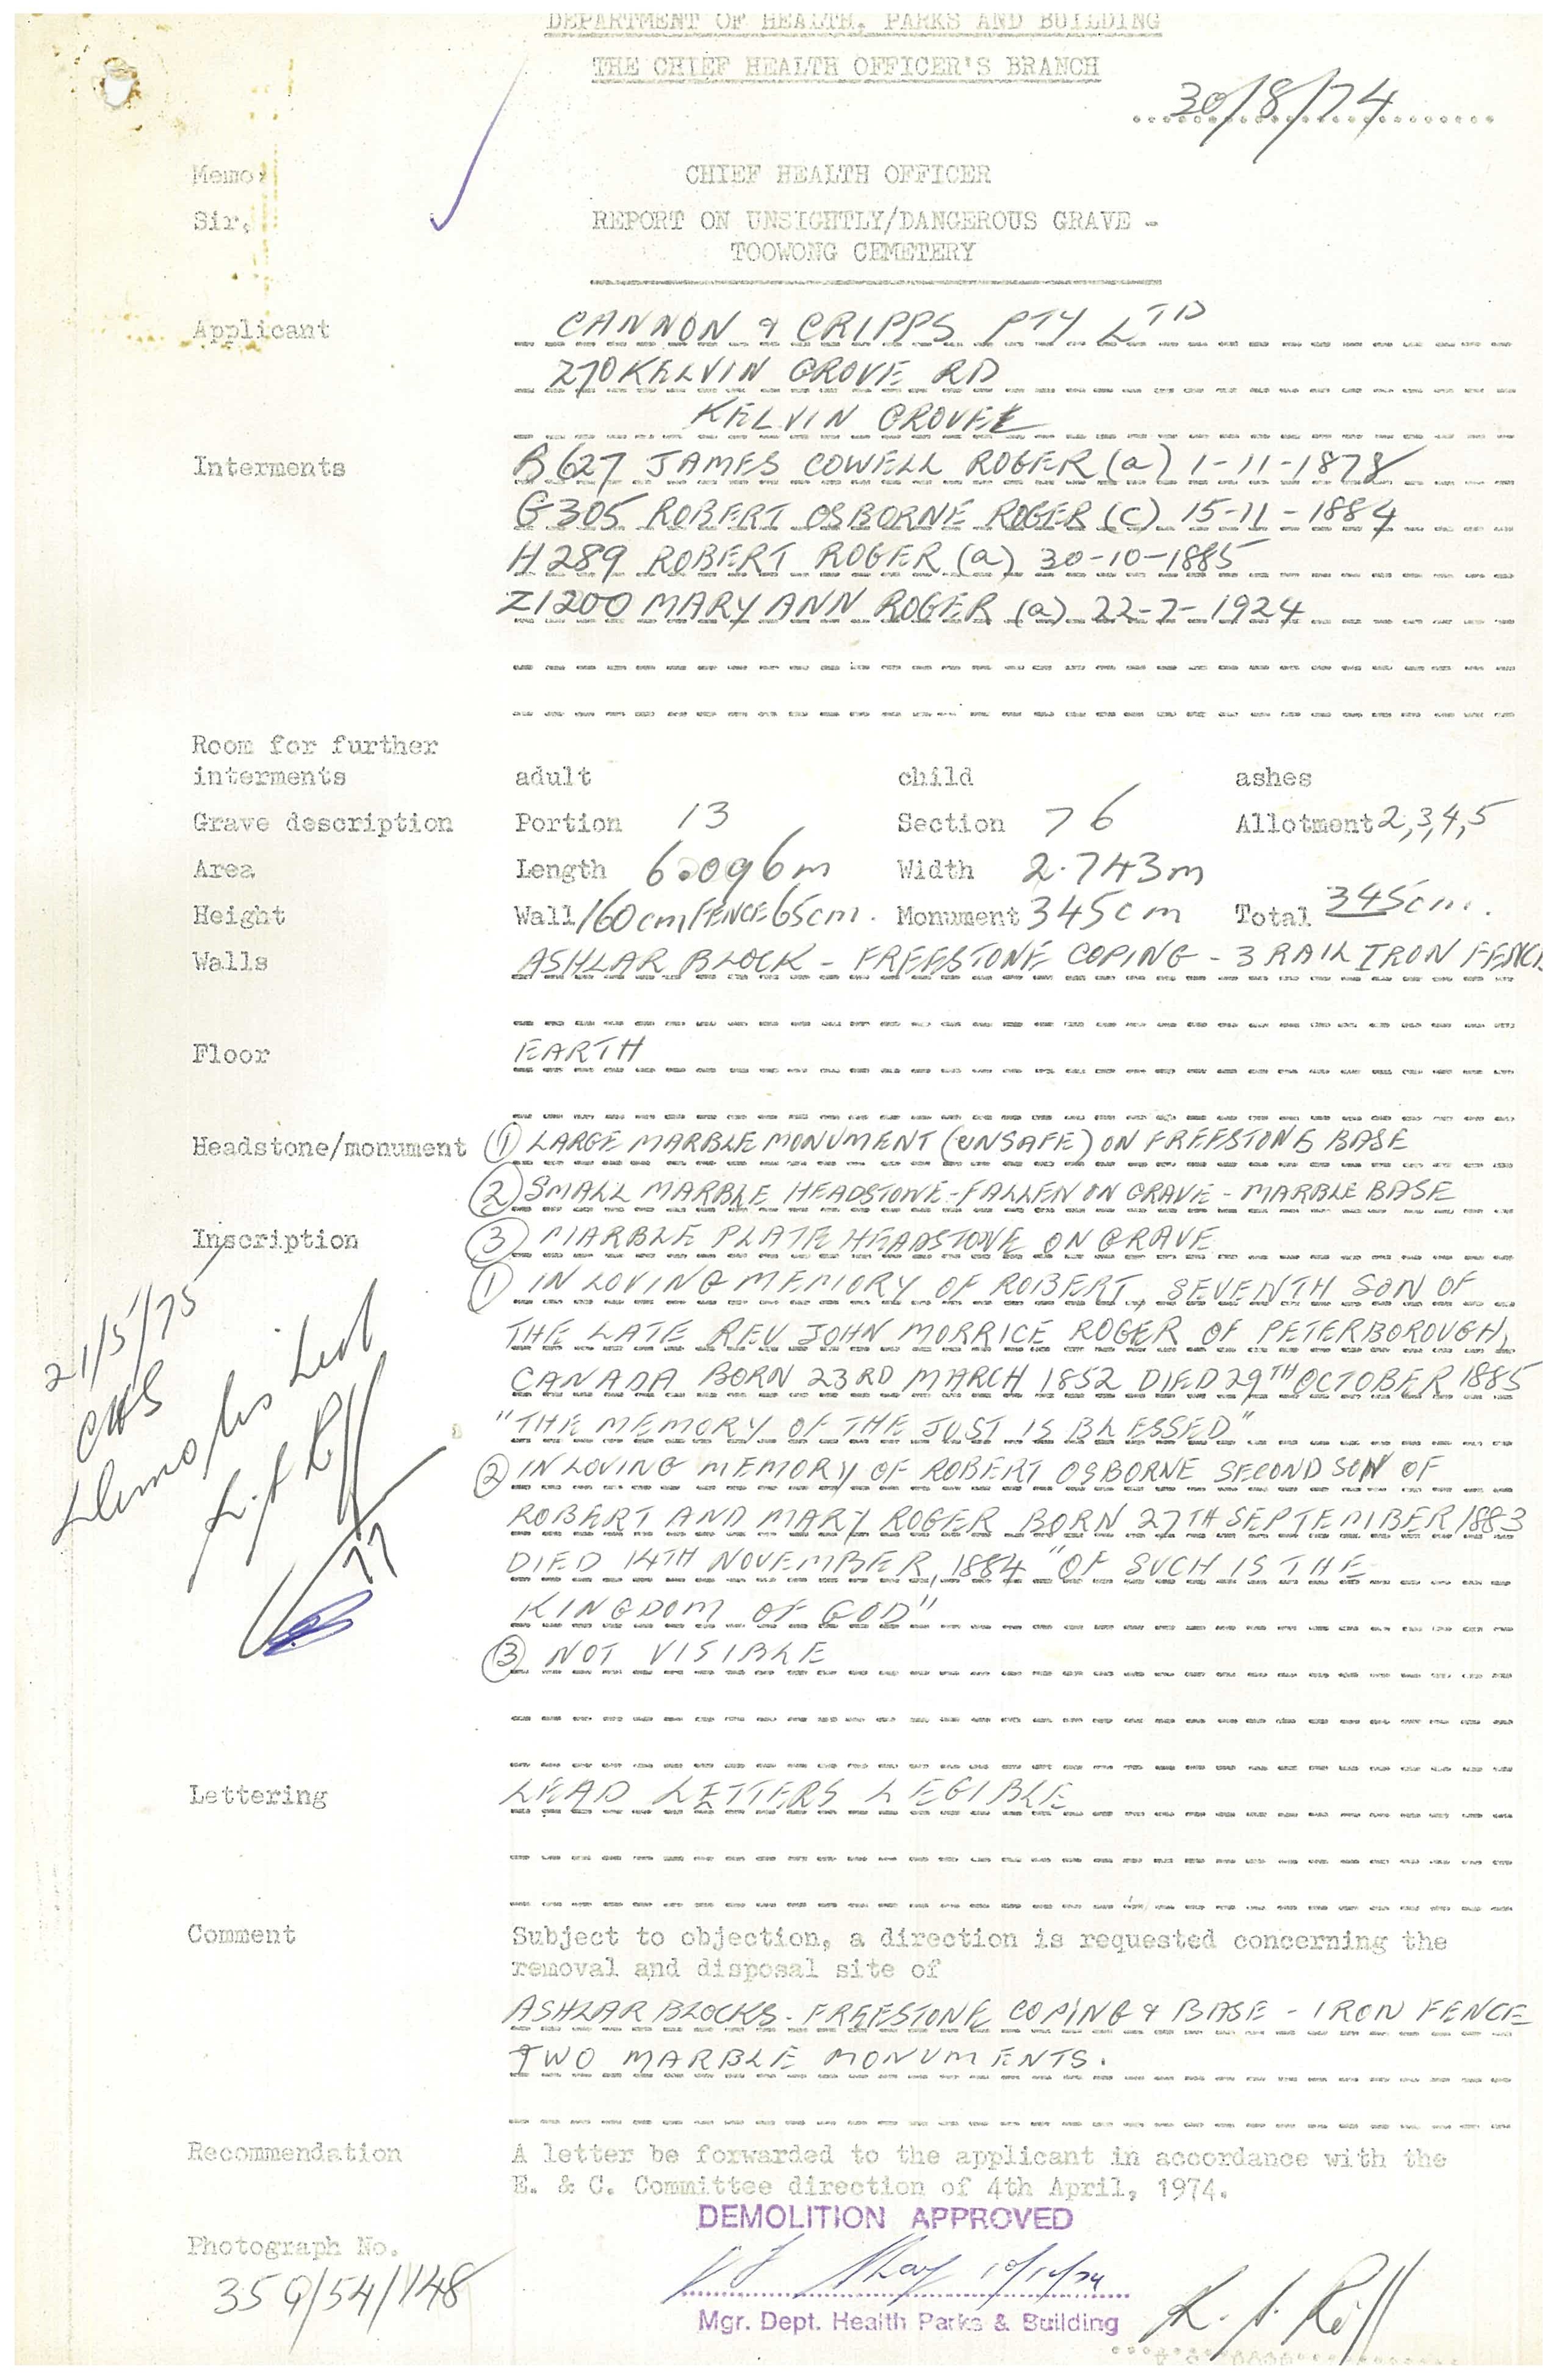 DEPARTMENT OF HEALTH, PARKS AND BUILDING
THE CHIEF HEALTH OFFICER'S BRANCH
30/8/74
Memo: CHIEF HEALTH OFFICER
Sir, REPORT ON UNSIGHTLY/DANGEROUS GRAVE -
TOOWONG CEMETERY
Applicant CANNON & CRIPPS PTY LTD
270 KELVIN GROVE RD
KELVIN GROVE
Interments B627 JAMES COWELL ROGER (a) 1-11-1878
G305 ROBERT OSBORNE ROGER (c) 15-11-1884
H289 ROBERT ROGER (a) 30-10-1885
Z1200 MARY ANN ROGER (a) 22-7-1924
Room for further
interments adult child ashes
Grave description Portion 13 Section 76 Allotment 2,3,4,5
Area Length 6.096m Width 2.743m
Height Wall 160cm FENCE 65cm. Monument 345cm Total 345cm.
Walls ASHLAR BLOCK - FREESTONE COPING - 3 RAIL IRON FENCE
Floor EARTH
Headstone/monument ① LARGE MARBLE MONUMENT (UNSAFE) ON FREESTONE BASE
② SMALL MARBLE HEADSTONE - FALLEN ON GRAVE - MARBLE BASE
Inscription ③ MARBLE PLATE HEADSTONE ON GRAVE
① IN LOVING MEMORY OF ROBERT, SEVENTH SON OF
THE LATE REV JOHN MORRICE ROGER OF PETERBOROUGH,
CANADA BORN 23RD MARCH 1852 DIED 29TH OCTOBER 1885
"THE MEMORY OF THE JUST IS BLESSED"
② IN LOVING MEMORY OF ROBERT OSBORNE SECOND SON OF
ROBERT AND MARY ROGER BORN 27TH SEPTEMBER 1883
DIED 14TH NOVEMBER, 1884 "OF SUCH IS THE
KINGDOM OF GOD"
③ NOT VISIBLE
21/5/75
Lettering LEAD LETTERS LEGIBLE
Comment Subject to objection, a direction is requested concerning the
removal and disposal site of
ASHLAR BLOCKS - FREESTONE COPING & BASE - IRON FENCE
TWO MARBLE MONUMENTS.
Recommendation A letter be forwarded to the applicant in accordance with the
E. & C. Committee direction of 4th April, 1974.
DEMOLITION APPROVED
Photograph No.
35Q/54/148
Mgr. Dept. Health Parks & Building